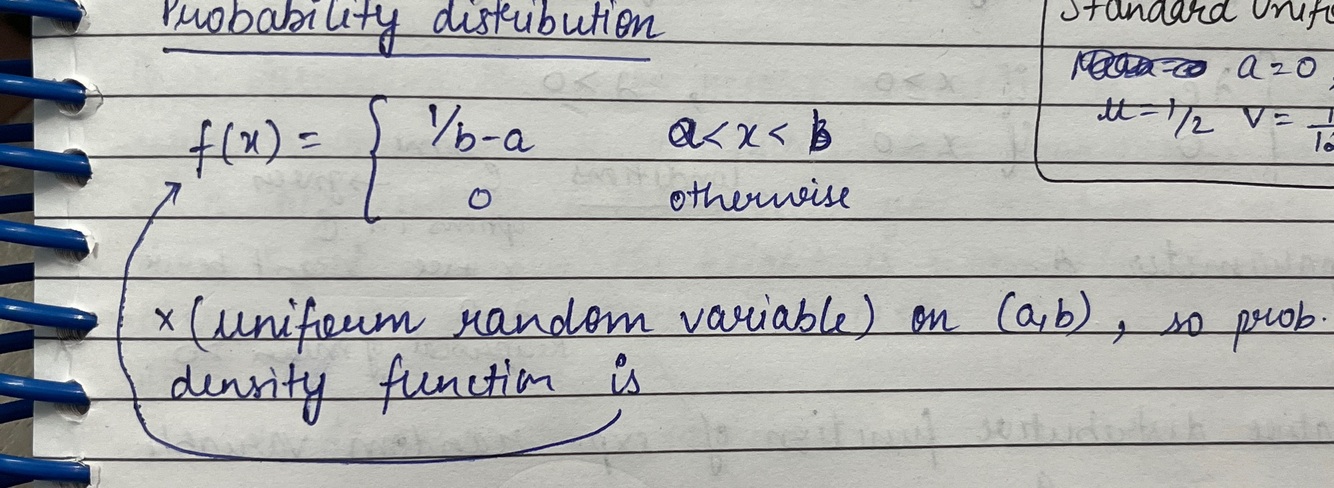 Probability distribution
Standard Unif
a=0
μ=1/2 V= 1
f(x) = { 1/b-a a<x<b
0 otherwise
x (uniform random variable) on (a,b), so prob.
density function is